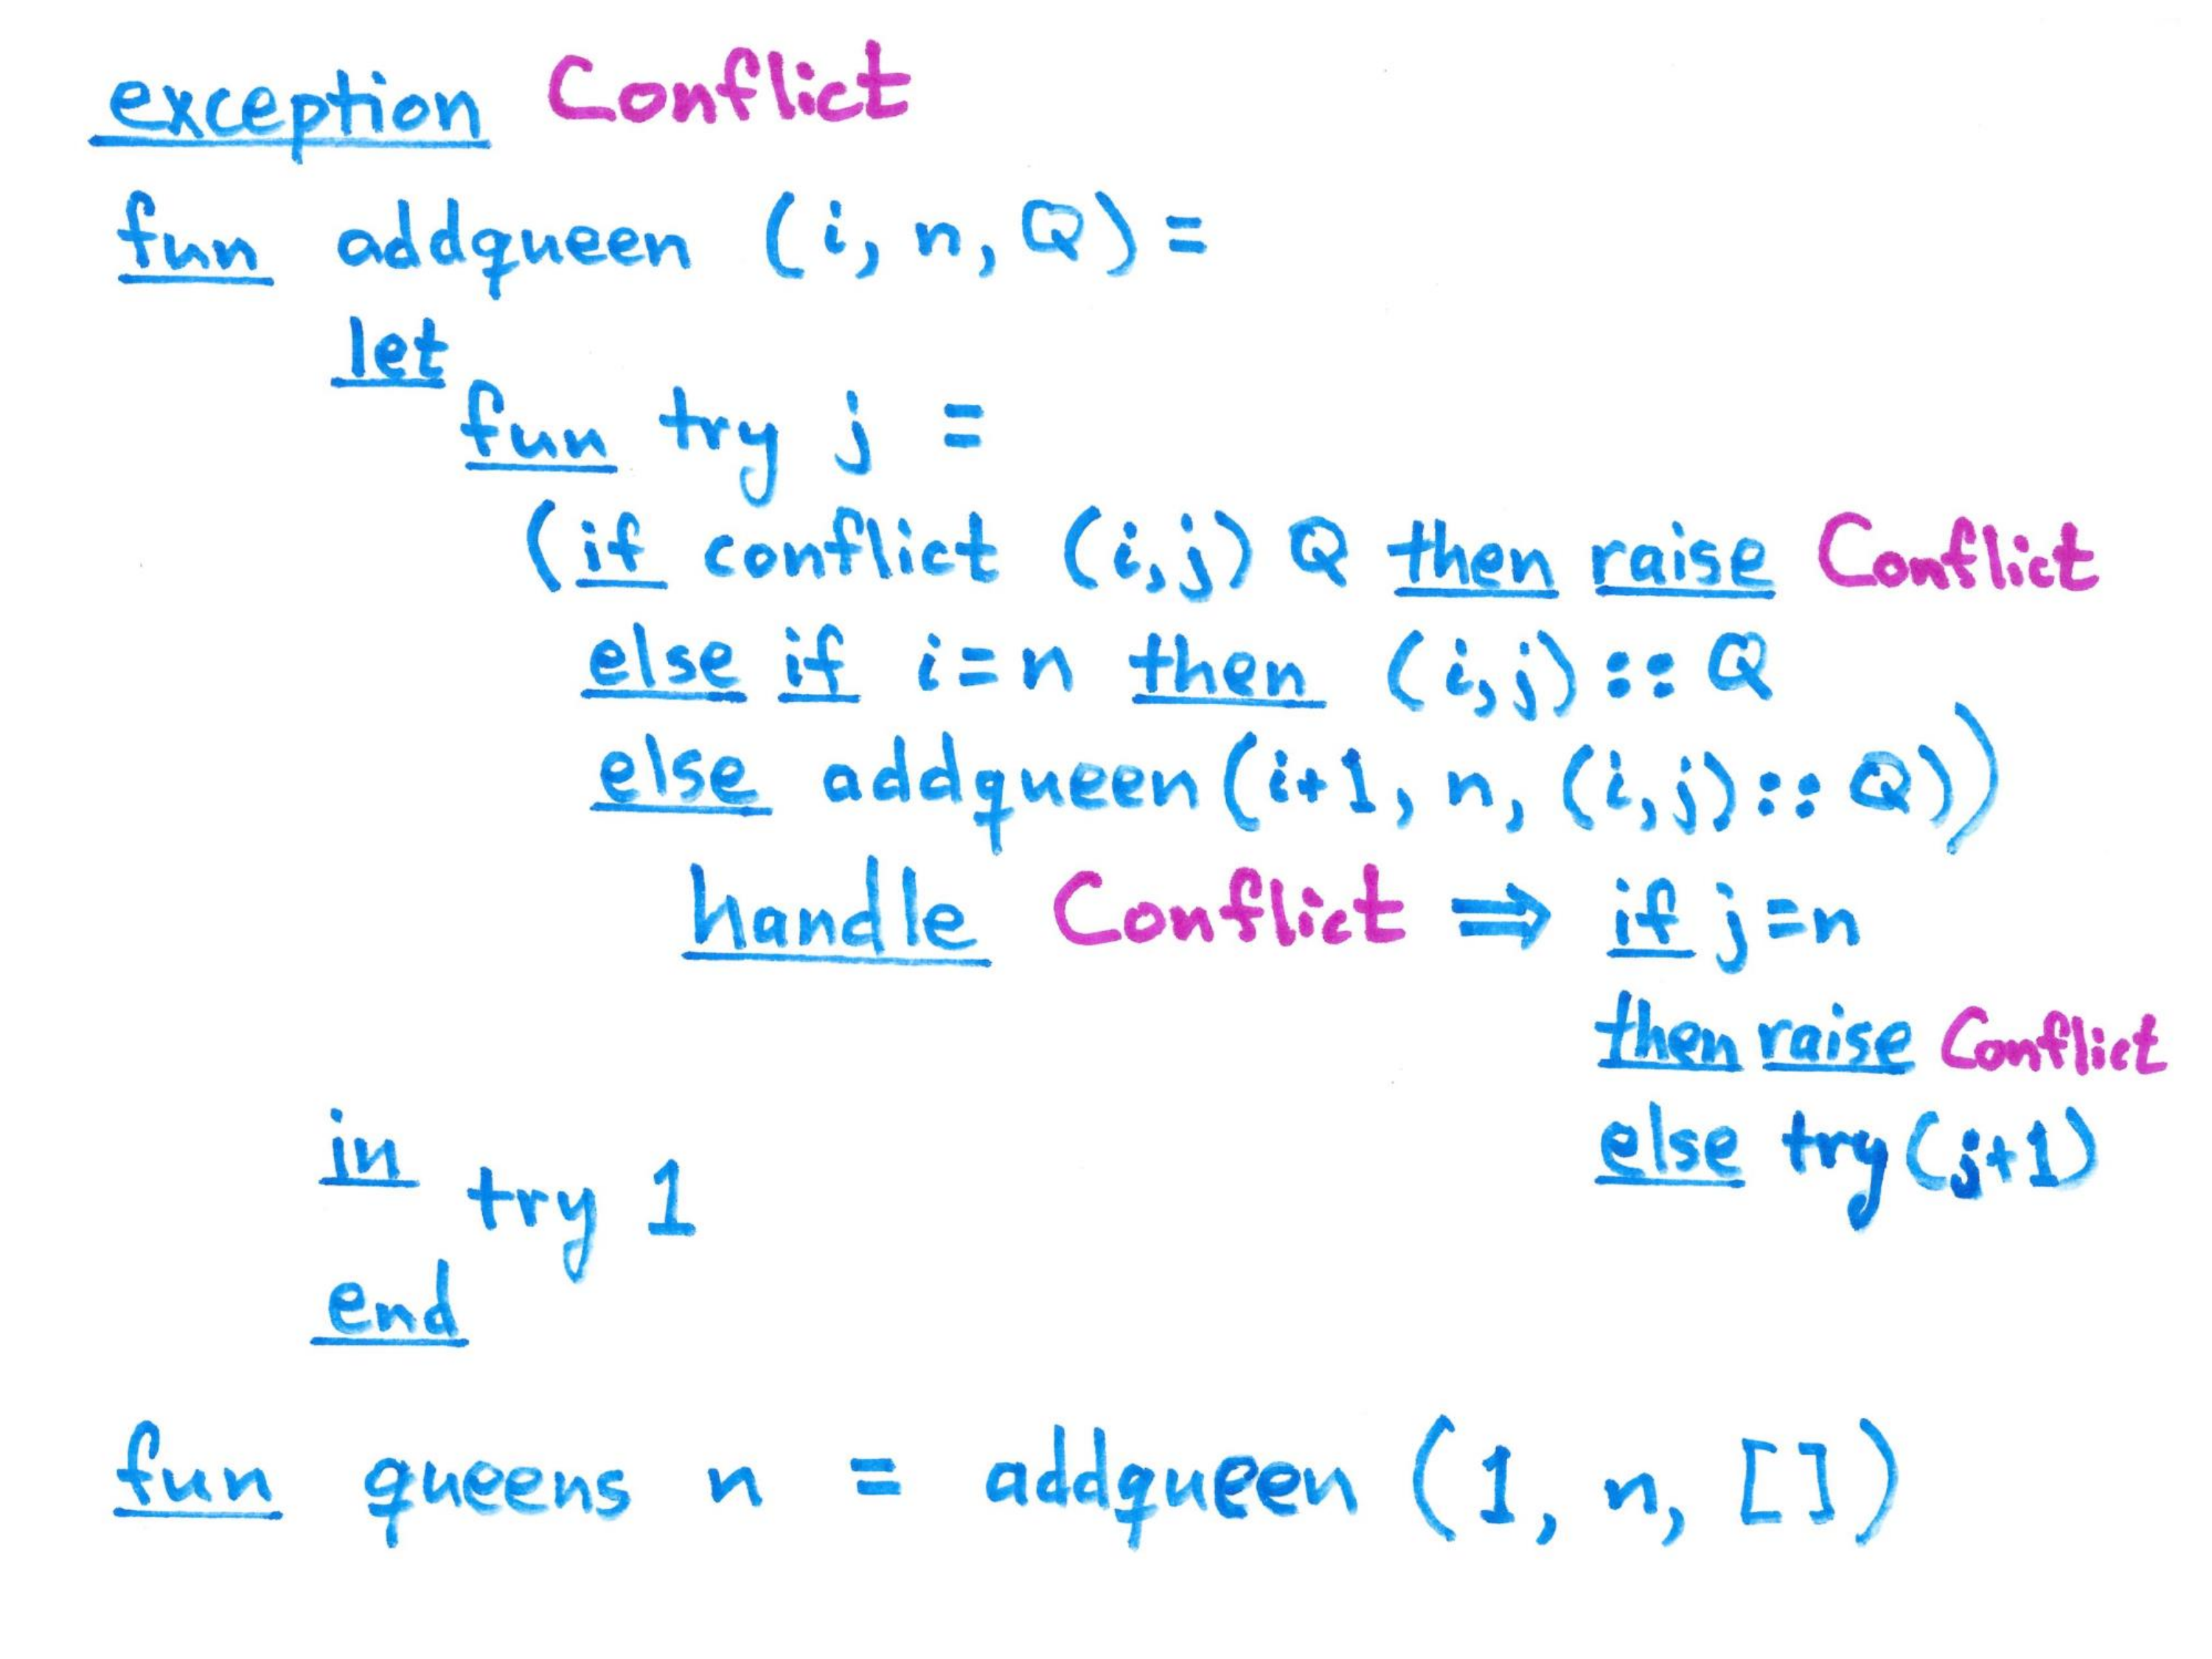 exception Conflict
fun addqueen (i, n, Q) =
let
fun try j =
(if conflict (i,j) Q then raise Conflict
else if i=n then (i,j) :: Q
else addqueen (i+1, n, (i,j) :: Q))
handle Conflict ⇒ if j=n
then raise Conflict
else try (j+1)
in try 1
end
fun queens n = addqueen (1, n, [])